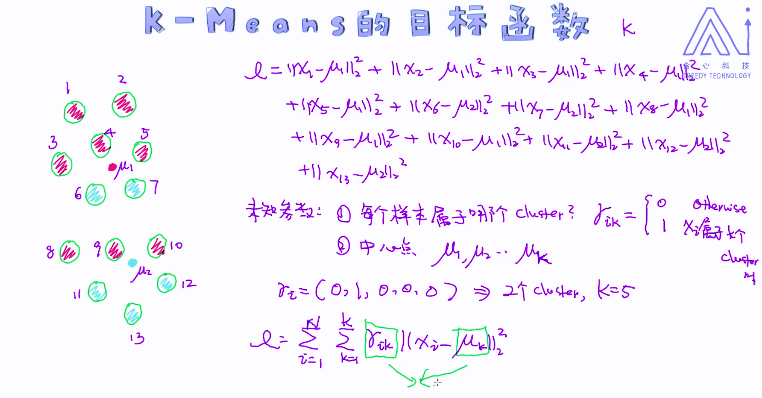 K-Means的目标函数
K
AI
贪心科技
GREEDY TECHNOLOGY
1 2
3 4 5
μ₁
6 7
8 9 10
μ₂
11 12
13
ℓ = ||x₁-μ₁||₂² + ||x₂-μ₁||₂² + ||x₃-μ₁||₂² + ||x₄-μ₁||₂²
+||x₅-μ₁||₂² + ||x₆-μ₂||₂² + ||x₇-μ₂||₂² + ||x₈-μ₁||₂²
+||x₉-μ₁||₂² + ||x₁₀-μ₁||₂² + ||x₁₁-μ₂||₂² + ||x₁₂-μ₂||₂²
+||x₁₃-μ₂||₂²
未知参数: ① 每个样本属于哪个 cluster? γᵢₖ = { 0 otherwise
1 xᵢ属于k个cluster时
② 中心点 μ₁, μ₂ ·· μₖ
γᵢ = (0, 1, 0, 0, 0) ⇒ 2个cluster, K=5
ℓ = Σᵢ₌₁ᴺ Σₖ₌₁ᴷ γᵢₖ ||xᵢ-μₖ||₂²